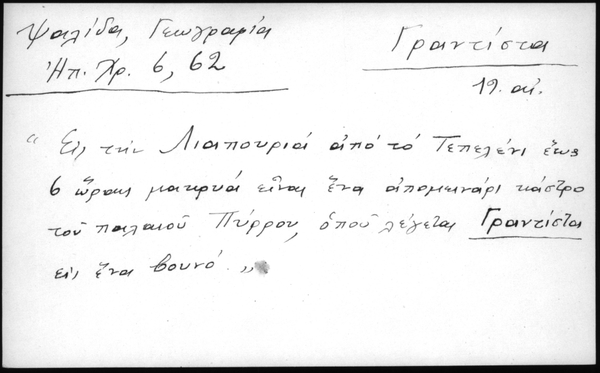 Ψαλίδα, Γεωγραφία
Ἠπ. Χρ. 6, 62
Γραντίστα
19. αἰ.
"Εἰς τὴν Λιαπουριά ἀπό τό Τεπελένι ἕως
6 ὥρας μακρυά εἶναι ἕνα ἀπομεινάρι κάστρο
τοῦ παλαιοῦ Πύρρου, ὁποῦ λέγεται Γραντίστα
εἰς ἕνα βουνό."